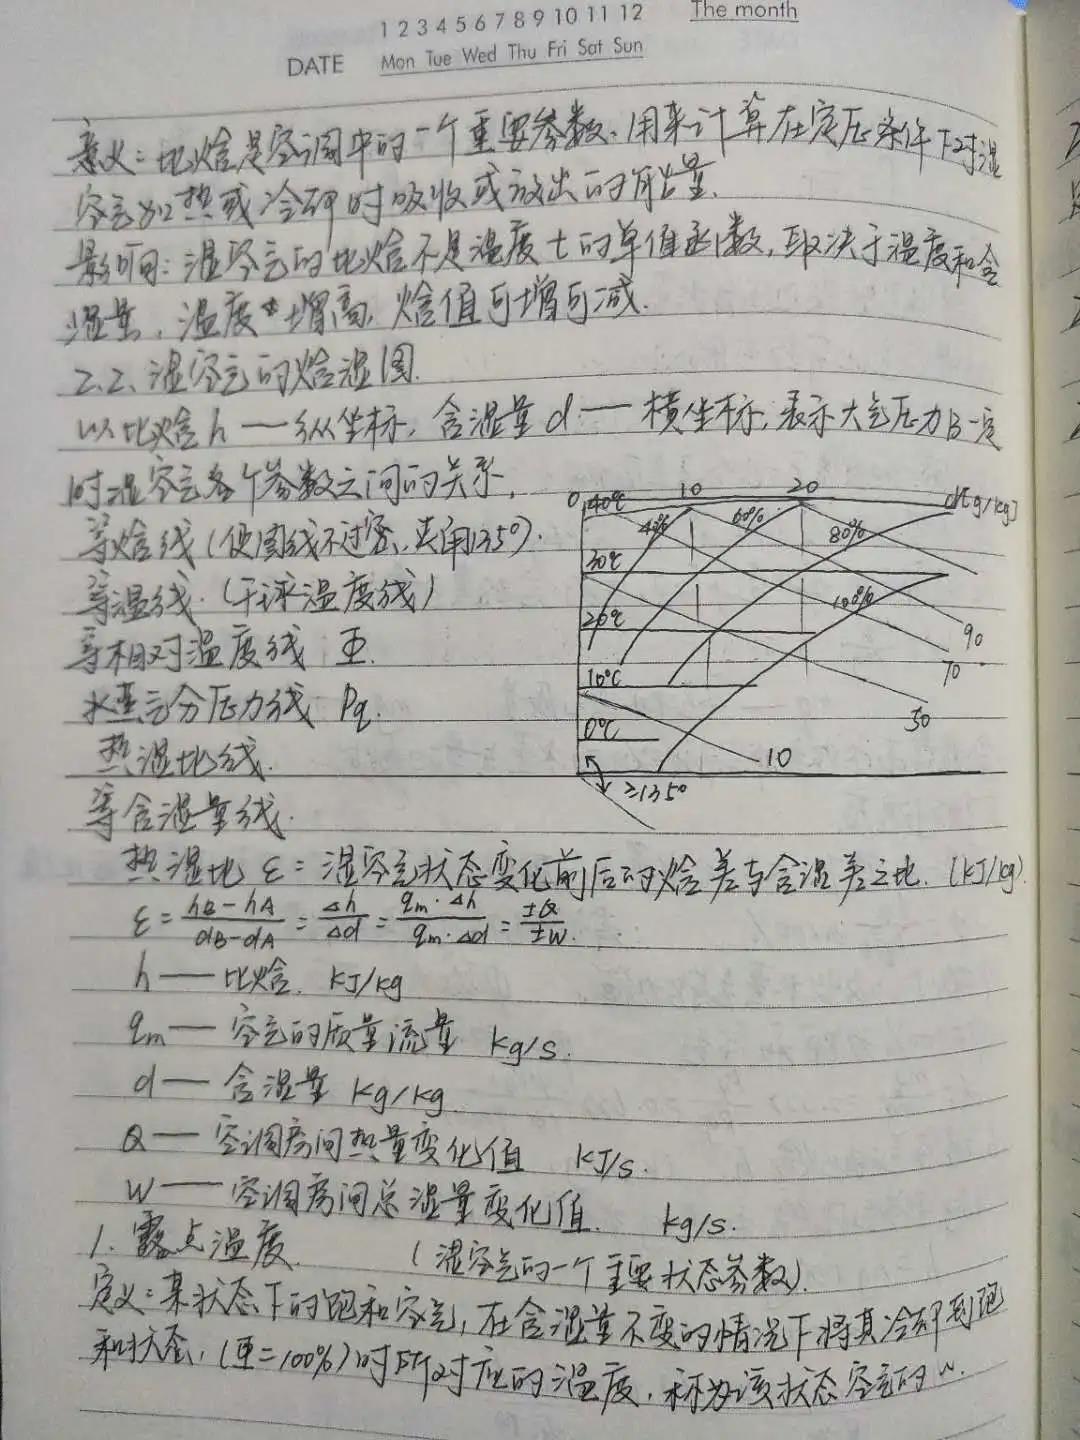 1 2 3 4 5 6 7 8 9 10 11 12 The month
DATE Mon Tue Wed Thu Fri Sat Sun
意义：比焓是空调中的一个重要参数、用来计算在定压条件下对湿
空气加热或冷却时吸收或放出的用量.
影响：湿空气的比焓不是温度t的单值函数，取决于温度和含
湿量，温度增高，焓值可增可减.
2.2、湿空气的焓湿图.
以比焓h—纵坐标，含湿量d—横坐标，表示大气压力B一定
时湿空气各个参数之间的关系，
0 10 20 d[g/kg]
40℃ 40% 60% 80%
等焓线（使图线不过密、夹角135°）.
30℃
等温线.（干球温度线） 100%
20℃
等相对湿度线 Φ. 90
10℃ 70
水蒸气分压力线 Pq. 50
0℃
热湿比线. 10
≥135°
等含湿量线.
热湿比 ε=湿空气状态变化前后的焓差与含湿差之比.（kJ/kg）.
ε = (hB-hA)/(dB-dA) = Δh/Δd = (qm·Δh)/(qm·Δd) = ±Q/±W.
h—比焓. kJ/kg
qm—空气的质量流量 kg/s.
d—含湿量 kg/kg.
Q—空调房间热量变化值 kJ/s.
W—空调房间总湿量变化值. kg/s.
1. 露点温度. （湿空气的一个重要状态参数）.
定义：某状态下的饱和空气，在含湿量不变的情况下将其冷却到饱
和状态，（Φ=100%）时所对应的温度，称为该状态空气的~.